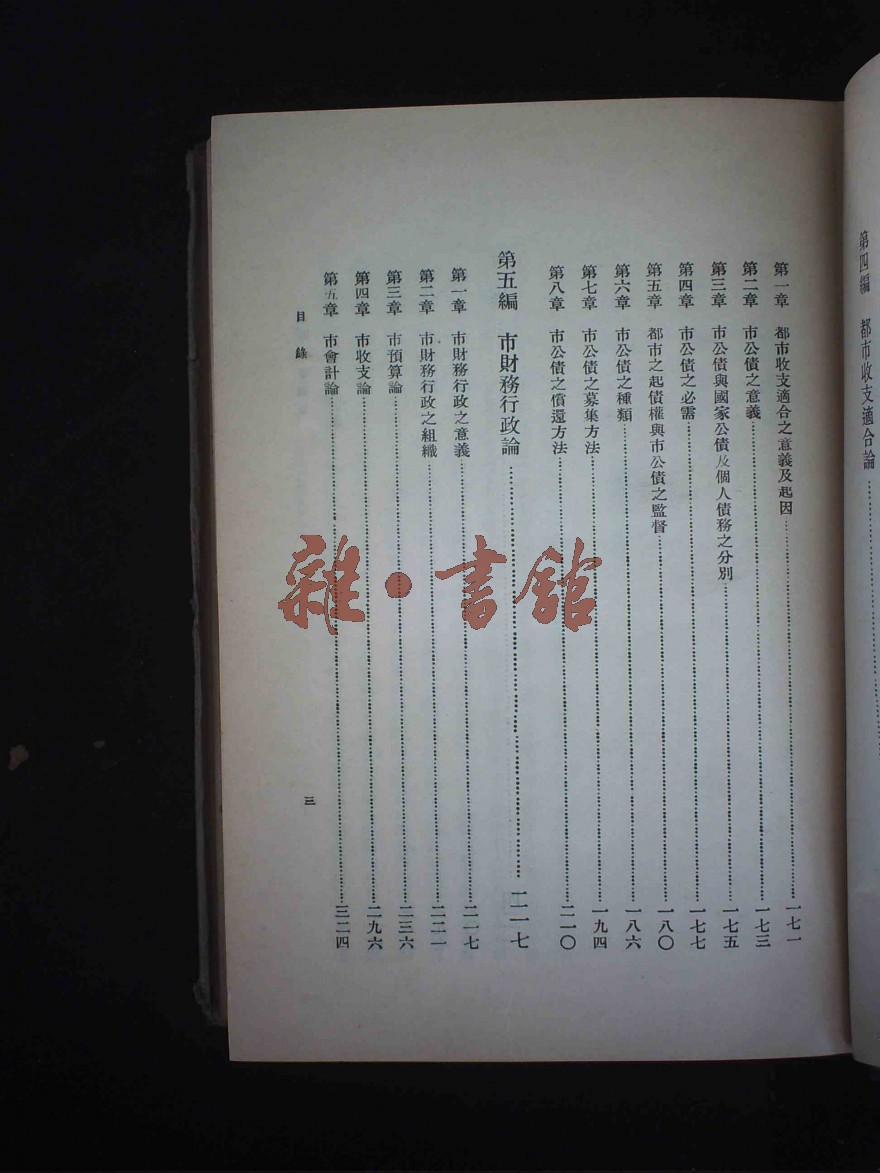 第四編　都市收支適合論……
第一章　都市收支適合之意義及起因……一七一
第二章　市公債之意義……一七三
第三章　市公債與國家公債及個人債務之分別……一七五
第四章　市公債之必需……一七七
第五章　都市之起債權與市公債之監督……一八〇
第六章　市公債之種類……一八六
第七章　市公債之募集方法……一九四
第八章　市公債之償還方法……二一〇
第五編　市財務行政論……二一七
第一章　市財務行政之意義……二一七
第二章　市財務行政之組織……二二一
第三章　市預算論……二三六
第四章　市收支論……二九六
第五章　市會計論……三二四
目錄
三
雜·書館